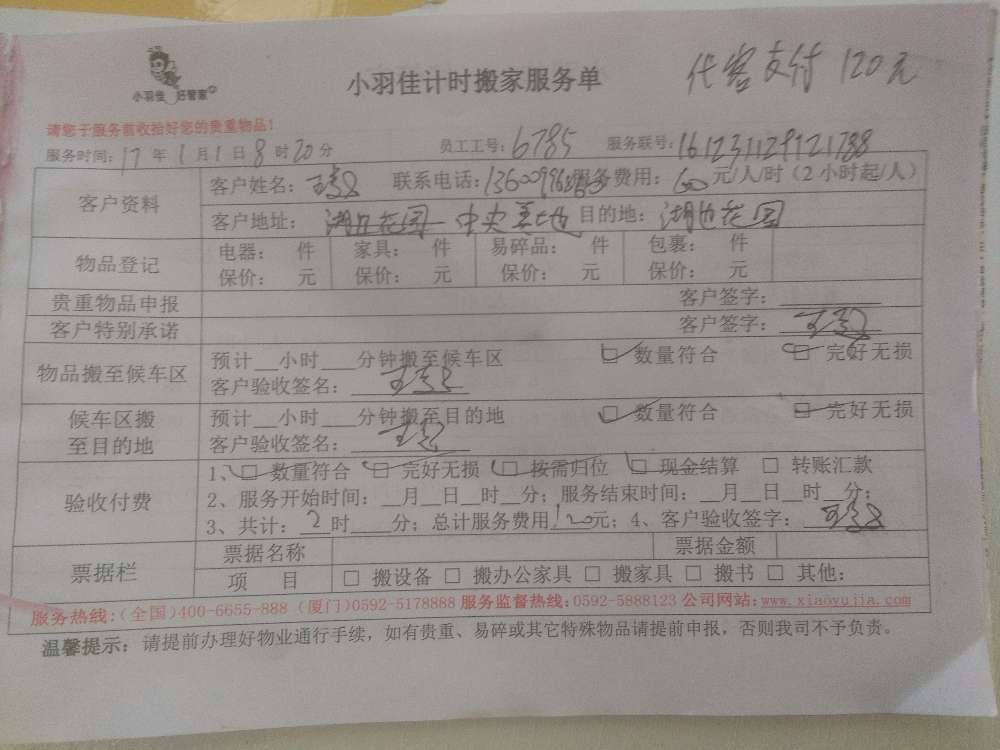 代客支付 120元
小羽佳 好管家
小羽佳计时搬家服务单
请您于服务前收拾好您的贵重物品!
服务时间: 17 年 1 月 1 日 8 时 20 分 员工工号: 6785 服务联号: 161231129121788
客户资料 客户姓名: 联系电话: 服务费用: 60 元/人/时 (2小时起/人)
客户地址: 湖边花园 中央美地 目的地: 湖边花园
物品登记 电器: 件 家具: 件 易碎品: 件 包裹: 件
保价: 元 保价: 元 保价: 元 保价: 元
贵重物品申报 客户签字:
客户特别承诺 客户签字:
物品搬至候车区 预计__小时___分钟搬至候车区 □ 数量符合 □ 完好无损
客户验收签名:
候车区搬至目的地 预计__小时___分钟搬至目的地 □ 数量符合 □ 完好无损
客户验收签名:
验收付费 1、□ 数量符合 □ 完好无损 □ 按需归位 □ 现金结算 □ 转账汇款
2、服务开始时间: __月__日__时__分; 服务结束时间: __月__日__时__分;
3、共计: 2 时___分; 总计服务费用 120 元; 4、客户验收签字:
票据栏 票据名称 票据金额
项 目 □ 搬设备 □ 搬办公家具 □ 搬家具 □ 搬书 □ 其他:
服务热线: (全国)400-6655-888 (厦门)0592-5178888 服务监督热线: 0592-5888123 公司网站: www.xiaoyujia.com
温馨提示: 请提前办理好物业通行手续, 如有贵重、易碎或其它特殊物品请提前申报, 否则我司不予负责。